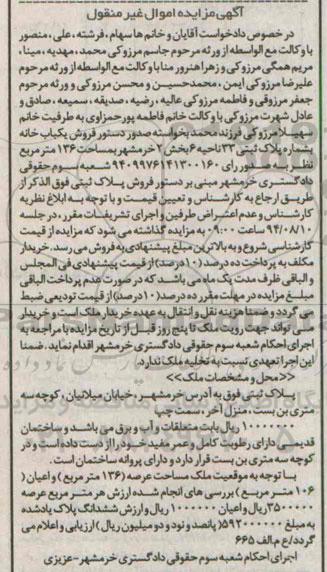 آگهی مزایده اموال غیر منقول
در خصوص دادخواست آقایان و خانم ها سهام، فرشته، علی، منصور
با وکالت مع الواسطه از ورثه مرحوم جاسم مرزوکی محمد، مهدیه، مینا،
مریم همگی مرزوکی و زهرا هنرور منا با وکالت مع الواسطه از ورثه مرحوم
علیرضا مرزوکی ایمن، محمدحسین و محسن مرزوکی و ورثه مرحوم
جعفر مرزوقی و فاطمه مرزوکی عالیه، رضیه، صدیقه، سمیعه، صادق و
عادل شهرت مرزوکی با وکالت خانم فاطمه پورحمزاوی به طرفیت خانم
سهیلا مرزوکی فرزند محمد بخواسته صدور دستور فروش یکباب خانه
بشماره پلاک ثبتی ۳۳ ناحیه ۶ بخش ۲ خرمشهر به مساحت ۱۳۶ متر مربع
نظر به صدور رای ۹۴۰۹۹۷۶۱۴۱۳۰۰۱۶۰ شعبه سوم حقوقی
دادگستری خرمشهر مبنی بر دستور فروش پلاک ثبتی فوق الذکر از
طریق ارجاع به کارشناس و تعیین قیمت و با توجه به ابلاغ نظریه
کارشناس و عدم اعتراض طرفین و اجرای تشریفات مقرر، در جلسه
۹۴/۰۸/۱۰ ساعت ۰۹:۰۰ به مزایده گذاشته می شود که مزایده از قیمت
کارشناسی شروع و به بالاترین مبلغ پیشنهادی به فروش می رسد. خریدار
مکلف به پرداخت ده درصد (۱۰ درصد) از قیمت پیشنهادی فی المجلس
و الباقی ظرف مدت یک ماه می باشد که در صورت عدم پرداخت الباقی
مبلغ مزایده در مهلت مقرر ده درصد (۱۰ درصد) از قیمت تودیعی ضبط
می گردد و ضمنا هزینه نقل و انتقال به عهده خریدار ملک است و خریدار
می تواند جهت رویت ملک تا پنج روز قبل از تاریخ مزایده با مراجعه به
اجرای احکام شعبه سوم حقوقی دادگستری خرمشهر اقدام نماید. ضمنا
این اجرا تعهدی نسبت به تخلیه ملک ندارد.
<<محل و مشخصات ملک>>
پلاک ثبتی فوق به آدرس خرمشهر، خیابان میلانیان، کوچه سه
متری بن بست، منزل آخر، سمت چپ
۱۰۰۰۰۰۰۰ ریال بابت متعلقات و آب و برق می باشد و ساختمان
قدیمی دارای رطوبت کامل و عمر مفید خود را از دست داده است و در
کوچه سه متری بن بست قرار دارد و دارای پروانه ساختمان است.
با توجه به موقعیت ملک مساحت عرصه (۱۳۶ متر مربع) و اعیان (
۱۰۶ متر مربع) بررسی های انجام شده ارزش هر متر مربع عرصه
۳۵۰۰۰۰۰ ریال و اعیان ۱۰۰۰۰۰۰ ریال و ارزش ششدانگ پلاک یادشده
به مبلغ ۵۹۲۰۰۰۰۰۰ (پانصد و نود و دو میلیون ریال) ارزیابی و اعلام می
گردد/ع م الف ۶۶۵
اجرای احکام شعبه سوم حقوقی دادگستری خرمشهر-عزیزی